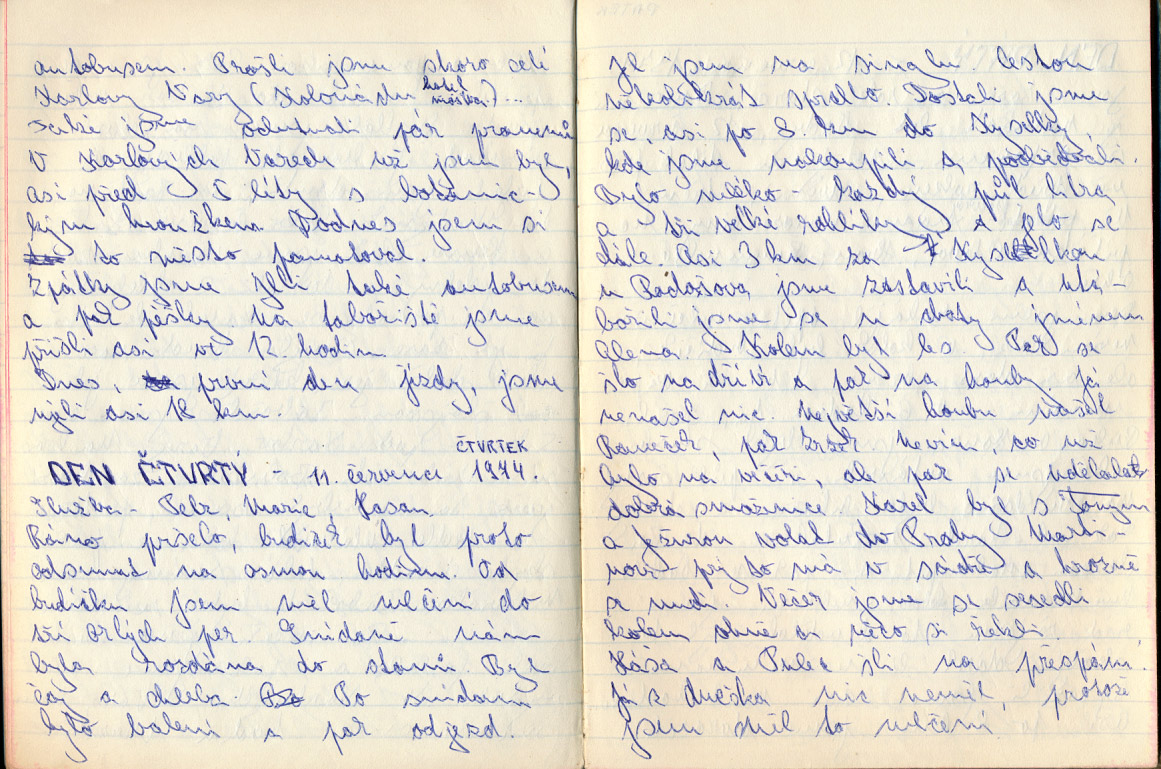 autobusem. Prošli jsme skoro celé
Karlovy Vary (Kolonádu, hotel Moskva)...
Také jsme ochutnali pár pramenů
V Karlových Varech už jsem byl,
asi před 5 lety s botanic-
kým kroužkem. Podnes jsem si
to město pamatoval.
Zpátky jsme jeli také autobusem
a pak pěšky. Na tábořiště jsme
přišli asi ve 12. hodin.
Dnes, první den jízdy, jsme
ujeli asi 18 km.
ČTVRTEK
DEN ČTVRTÝ - 11. července 1974.
Služba - Petr, Marie, Hasan
Ráno pršelo, budíček byl proto
odsunut na osmou hodinu. Od
budíčku jsem měl mlčení do
tří orlých per. Snídaně nám
byla rozdána do stanů. Byl
čaj a chleba. Po snídani
bylo balení a pak odjezd.
Jel jsem na singlu. Cestou
několikrát sprchlo. Dostali jsme
se asi po 8 km do Kyselky,
kde jsme nakoupili a poobědvali.
Bylo mléko každý půl litru
a tři velké rohlíky a jelo se
dále. Asi 3 km za Kyselkou
u Radošova jsme zastavili a utá-
bořili jsme se u chaty jménem
Alena. Kolem byl les. Pak se
šlo na dříví a pak na houby. Já
nenašel nic. Největší houbu našel
pak Nevím, co už
bylo na večeři, ale pak se udělala
dobrá smaženice. Karel byl s Tondým
a volat do Prahy.
prý to má v sádře a hrozně
se nudí. Večer jsme se sesedli
kolem ohně a něco si řekli.
Hása a šli na přespání.
Já z dneška nic neměl, protože
jsem měl to mlčení